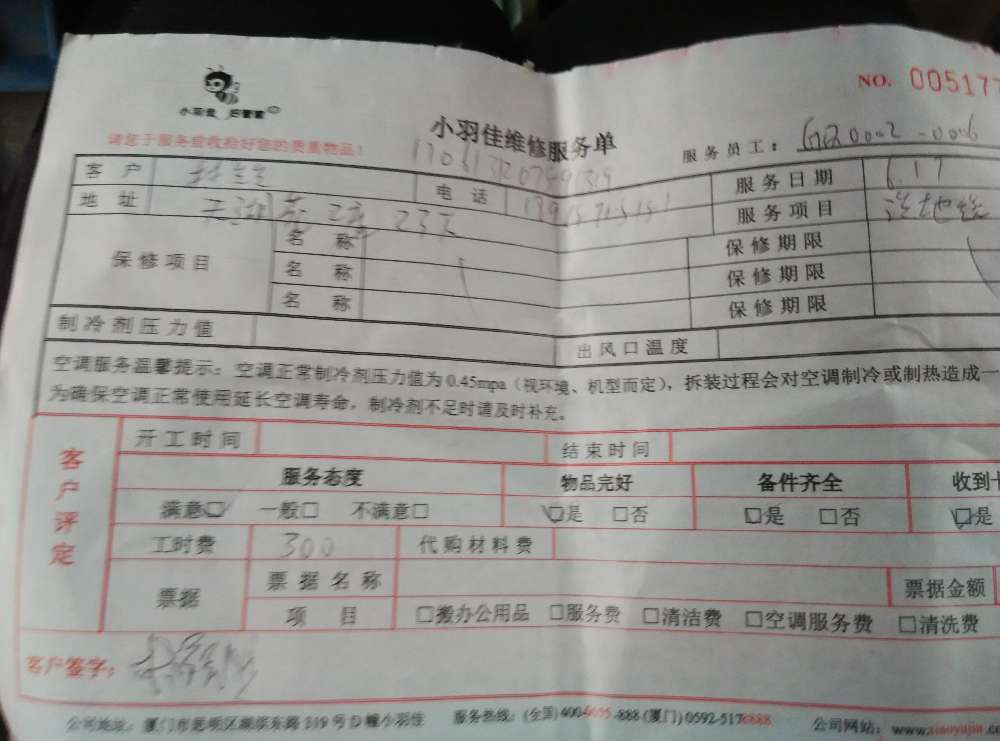 小羽佳 好管家
NO. 005177
小羽佳维修服务单
请您于服务前收捡好您的贵重物品！
服务员工：
客户 电话 服务日期 6.17
地址 服务项目 洗地毯
保修项目 名称 保修期限
名称 保修期限
名称 保修期限
制冷剂压力值 出风口温度
空调服务温馨提示：空调正常制冷剂压力值为0.45mpa（视环境、机型而定），拆装过程会对空调制冷或制热造成一
为确保空调正常使用延长空调寿命，制冷剂不足时请及时补充。
客户评定
开工时间 结束时间
服务态度 物品完好 备件齐全 收到
满意□ 一般□ 不满意□ □是 □否 □是 □否 □是
工时费 300 代购材料费
票据 票据名称 票据金额
项目 □搬办公用品 □服务费 □清洁费 □空调服务费 □清洗费
客户签字：
公司地址：厦门市思明区湖滨东路319号D幢小羽佳 服务热线：(全国)400-6655-888 (厦门) 0592-5176888 公司网站：www.xiaoyujia.c